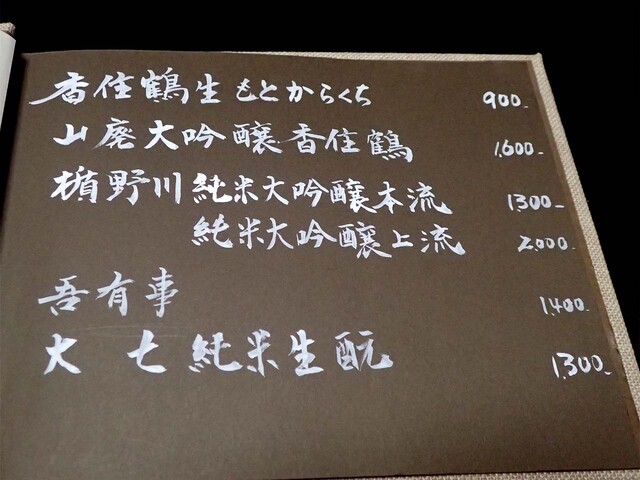 香住鶴生もとからくち 900.-
山廃大吟醸香住鶴 1,600-
楯野川純米大吟醸本流 1,300-
純米大吟醸上流 2,000.
吾有事 1,400.
大七純米生酛 1,300.